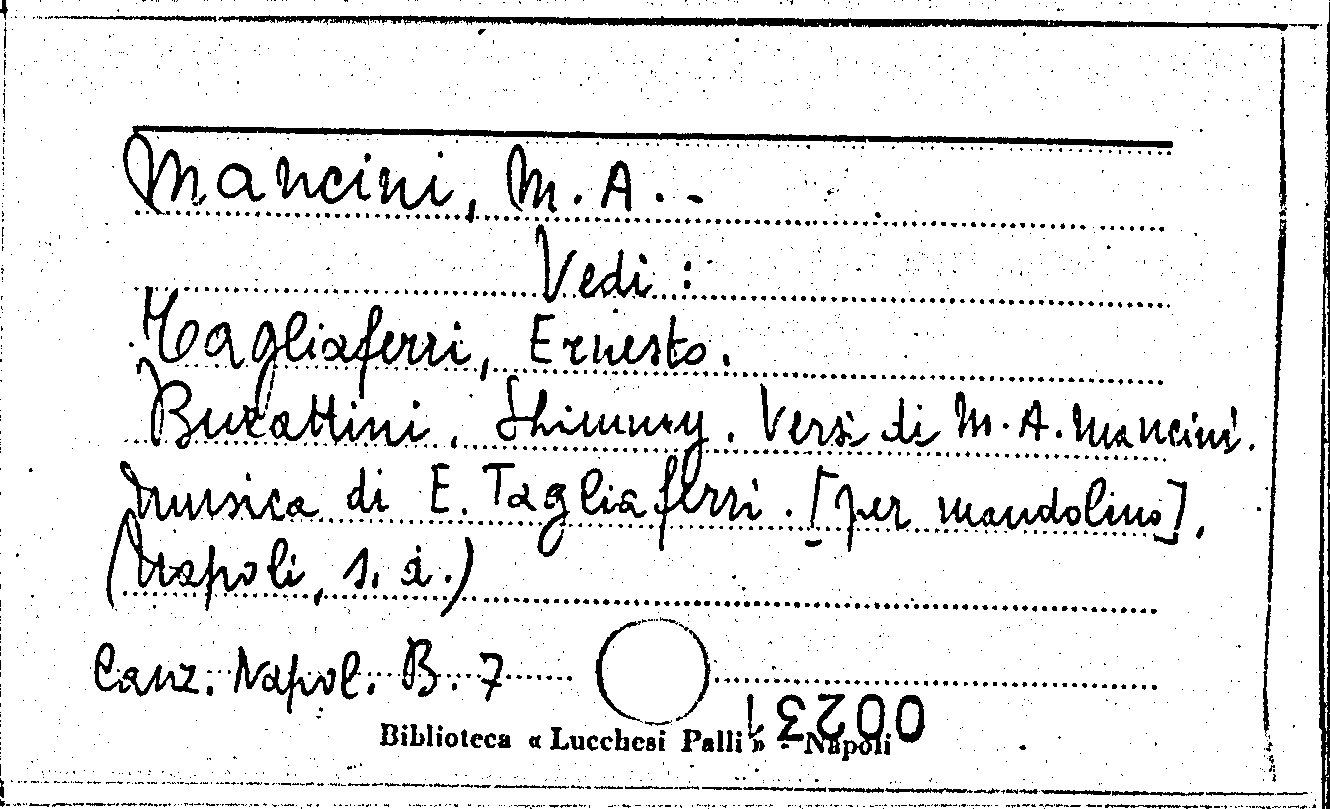 Mancini, M. A. . -
Vedi :
Tagliaferri, Ernesto.
Burattini. Shimmy. Versi di M. A. Mancini.
Musica di E. Tagliaferri. [per mandolino],
(Napoli, s. d.)
Canz. Napol. B. 7
00231
Biblioteca « Lucchesi Palli » - Napoli